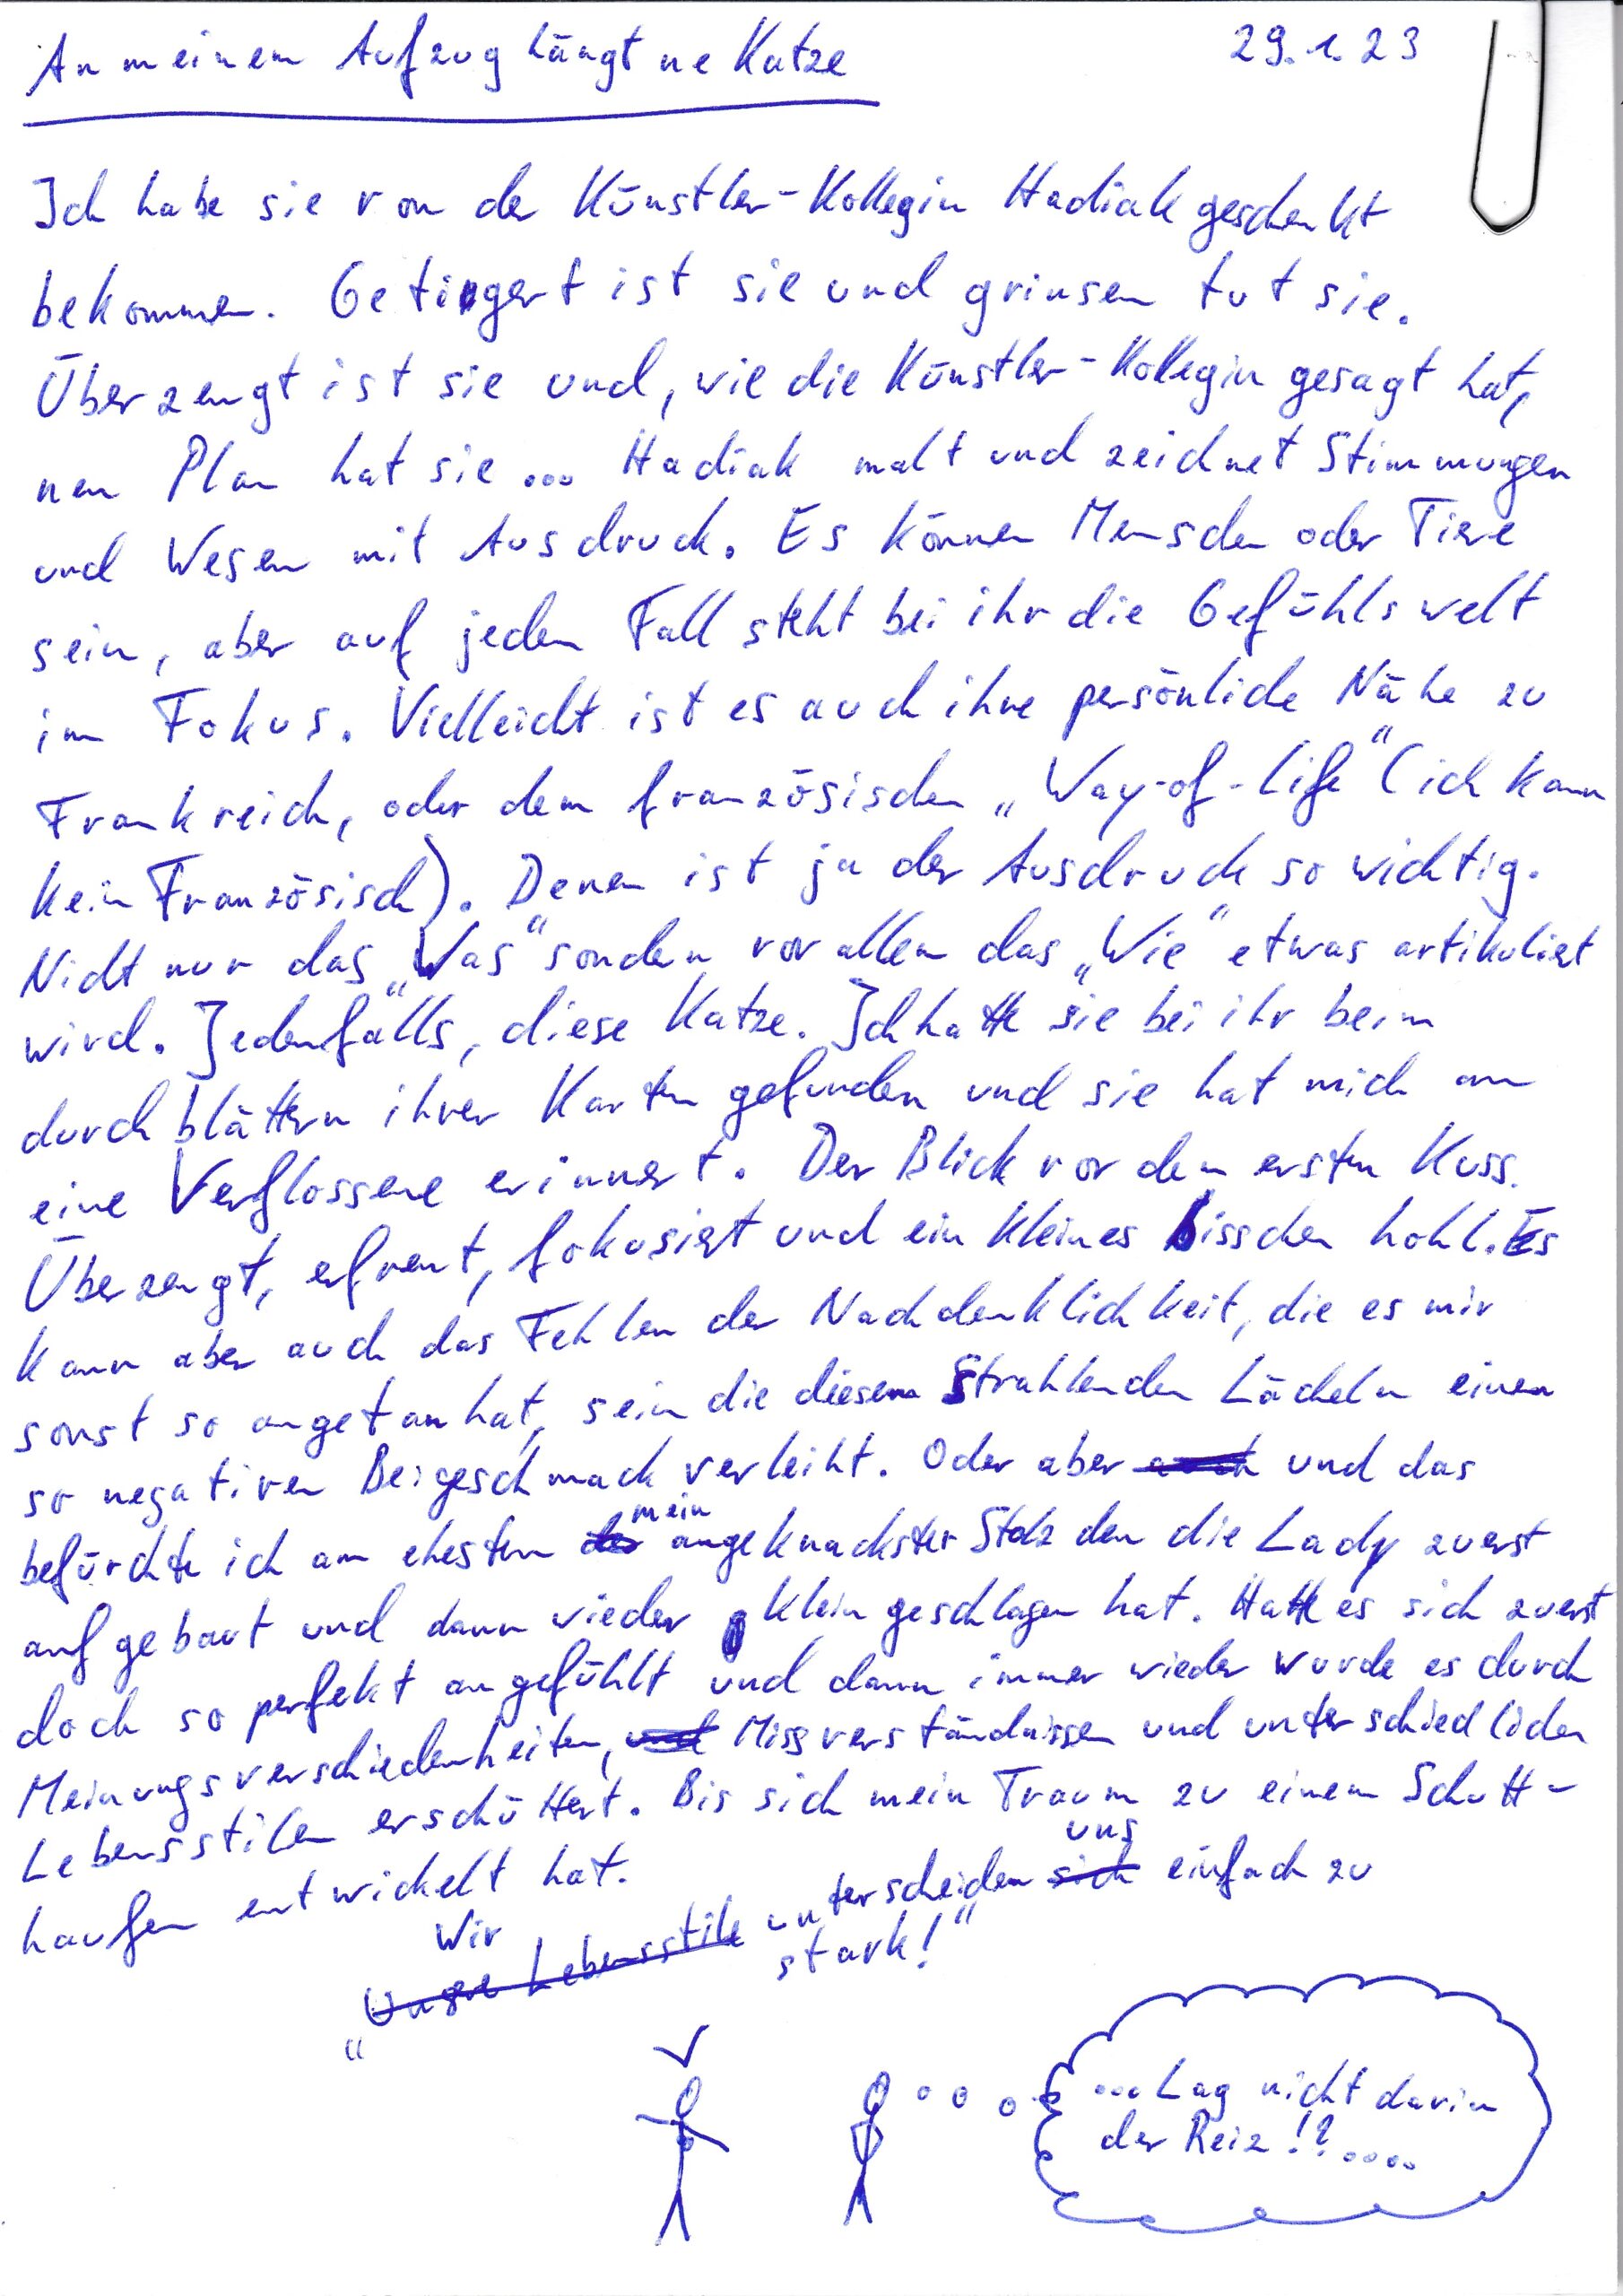 An meinem Aufzug hängt ne Katze
29.1.23
Ich habe sie von der Künstler-Kollegin Hadiak geschenkt
bekommen. Getigert ist sie und grinsen tut sie.
Überzeugt ist sie und, wie die Künstler-Kollegin gesagt hat,
nen Plan hat sie ... Hadiak malt und zeichnet Stimmungen
und Wesen mit Ausdruck. Es können Menschen oder Tiere
sein, aber auf jeden Fall steht bei ihr die Gefühlswelt
im Fokus. Vielleicht ist es auch ihre persönliche Nähe zu
Frankreich, oder dem französischen „Way-of-Life“ (ich kann
kein Französisch). Denen ist ja der Ausdruck so wichtig.
Nicht nur das „Was“ sondern vor allem das „Wie“ etwas artikuliert
wird. Jedenfalls, diese Katze. Ich hatte sie bei ihr beim
durchblättern ihrer Karten gefunden und sie hat mich an
eine Verflossene erinnert. Der Blick vor dem ersten Kuss.
Überzeugt, erfreut, fokusiert und ein kleines bisschen hohl. Es
kann aber auch das Fehlen der Nachdenklichkeit, die es mir
sonst so angetan hat, sein die diesem strahlenden Lächeln einen
so negativen Beigeschmack verleiht. Oder aber auch und das
befürchte ich am ehesten der mein angeknackster Stolz den die Lady zuerst
aufgebaut und dann wieder klein geschlagen hat. Hatte es sich zuerst
doch so perfekt angefühlt und dann immer wieder wurde es durch
Meinungsverschiedenheiten, und Missverständnissen und unterschiedlichen
Lebensstilen erschüttert. Bis sich mein Traum zu einem Schutt-
haufen entwickelt hat.
„Unsere Lebensstile Wir unterscheiden sich uns einfach zu
stark!“
...Lag nicht darin
der Reiz!?....